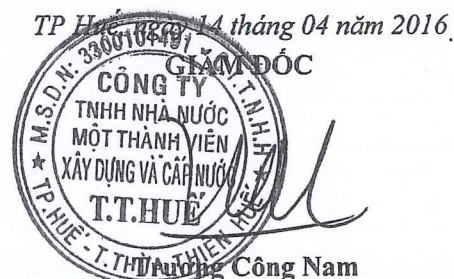 TP Huế, ngày 14 tháng 04 năm 2016
GIÁM ĐỐC
M.S.D.N: 3300101491
T.N.H.H
CÔNG TY
TNHH NHÀ NƯỚC
MỘT THÀNH VIÊN
XÂY DỰNG VÀ CẤP NƯỚC
T.T.HUẾ
TP.HUẾ - T.THỪA THIÊN HUẾ
Trương Công Nam